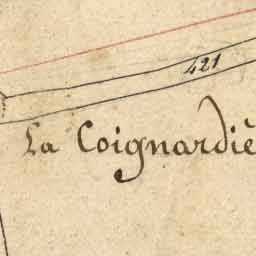 421
La Coignardiè